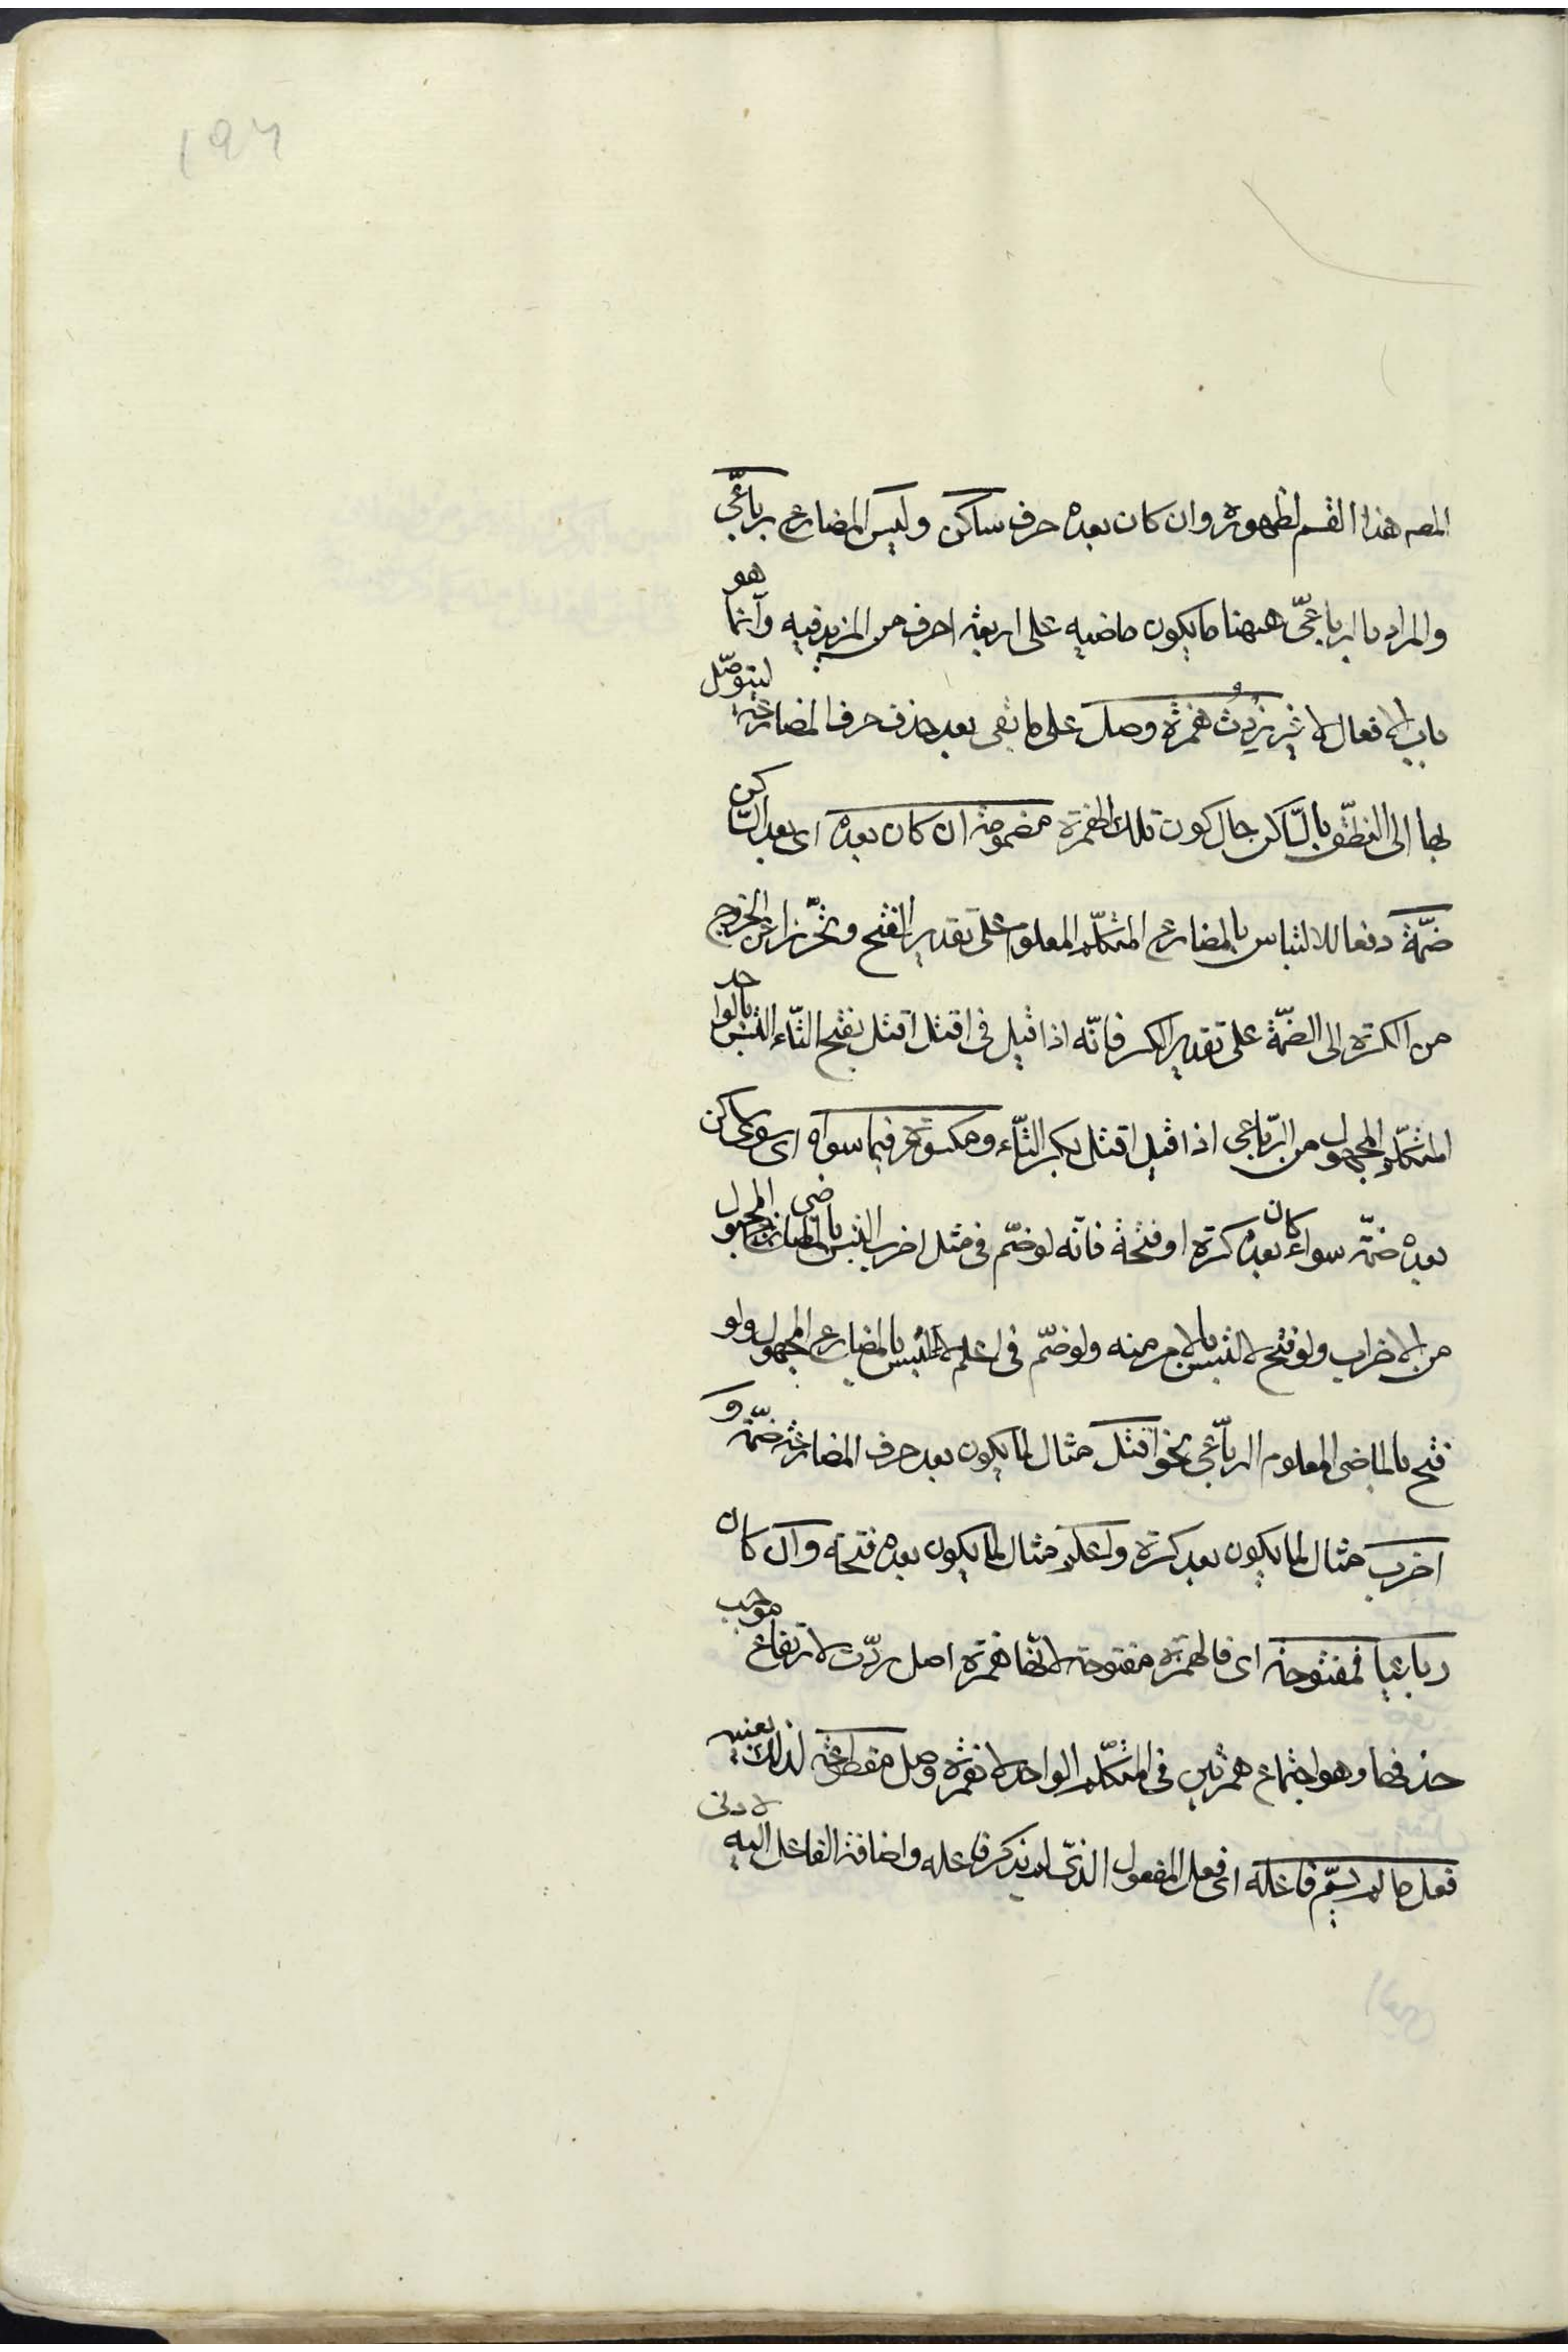 ١٩٦
المصه هذا القسم لظهوره وان كان بعده حرف ساكن وليس المضارع برباعّي
والمراد بالرباعّي ههنا ما يكون ماضيه على اربعة احرف من المزيد فيه وانما هو
باب الافعال لا غير زيدت همزة وصل على ما بقى بعد حذف حرف المضارعة ليتوصّل
بها الى النطق بالسّاكن حال كون تلك الهمزة مضمومة ان كان بعده اى بعد السّاكن
ضمّة دفعا للالتباس بالمضارع المتكلّم المعلوم على تقدير الفتح وتحّرزا عن الخروج
من الكسرة الى الضمّة على تقدير الكسر فانّه اذا قيل فى اقتل اقتل بفتح التّاء التبس بالواحد
المتكلّم المجهول من الرّباعى اذا قيل اقتل بكسر التّاء ومكسورة فيما سواه اى سوى ساكن
بعده ضمّة سواء كان بعده كسرة او فتحة فانّه لو ضمّ فى مثل اضرب التبس بالماضى المجهول
من الاضراب ولو فتح لالتبس بالامر منه ولو ضمّ فى اعلم لالتبس بالمضارع المجهول ولو
فتح بالماضى المعلوم الرباّعى نحو اقتل مثال لما يكون بعد حرف المضارعة ضمّة و
اضرب مثال لما يكون بعد كسرة واعلم مثال لما يكون بعده فتحة وان كان
رباعيا فمفتوحة اى فالهمزة مفتوحة لانّها همزة اصل ردّت لارتفاع موجب
حذفها وهو اجتماع همزتين فى المتكلّم الواحد لا همزة وصل مقطوعة لذلك بعينه
فعل ما لم يسمّ فاعله اى فعل المفعول الذّى لم يذكر فاعله واضافة الفاعل اليه لادنى